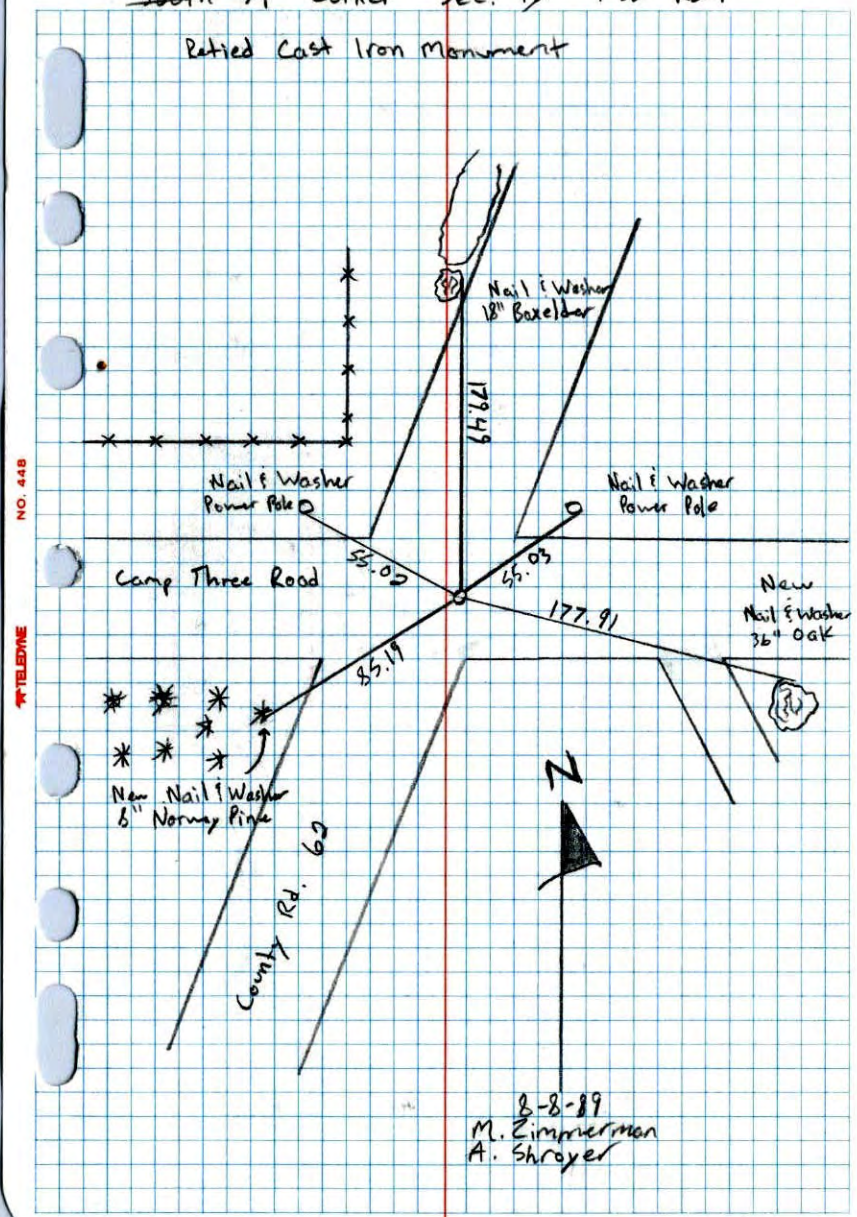 Corner Sec.
Retied Cast Iron Monument
Nail & Washer
18" Boxelder
179.49
Nail & Washer
Power Pole
Nail & Washer
Power Pole
55.02
55.03
Camp Three Road
177.91
New
Nail & Washer
36" Oak
85.19
New Nail & Washer
Norway Pine
County Rd. 62
N
8-8-89
M. Zimmerman
A. Shroyer
NO. 448
TELEDYNE